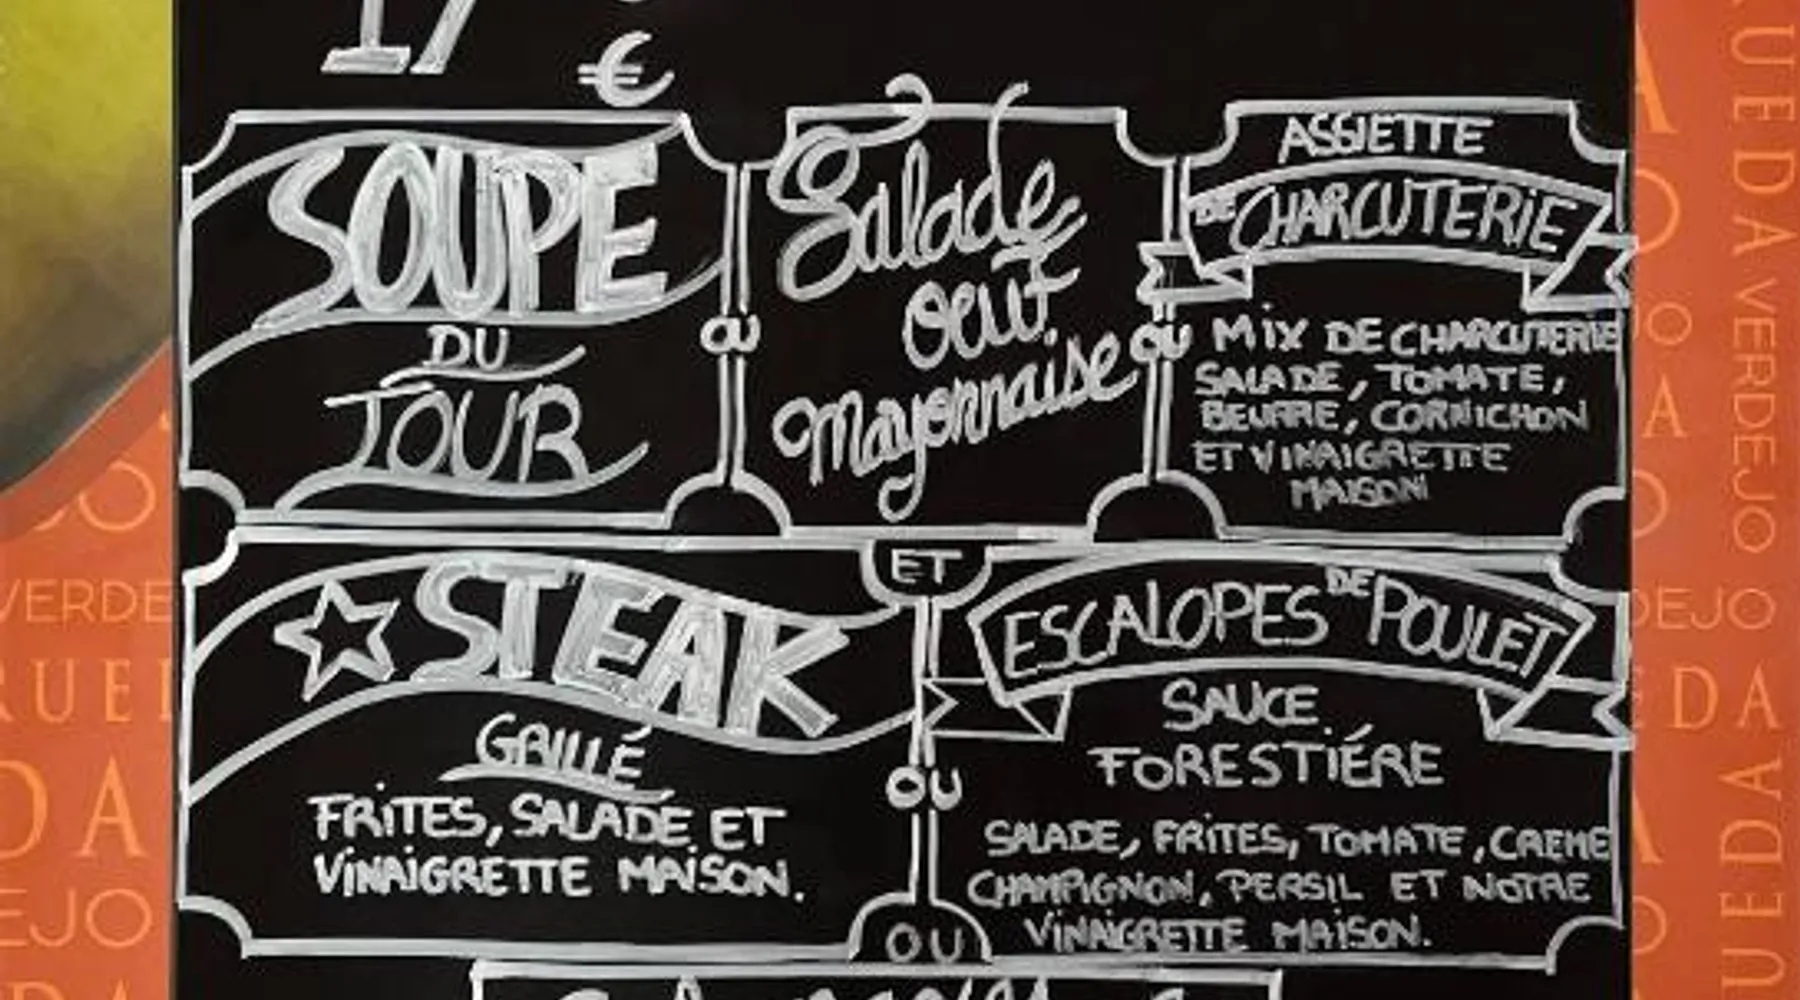 17 €
SOUPE
DU
JOUR
OU
Salade
oeuf
Mayonnaise
OU
ASSIETTE
DE CHARCUTERIE
MIX DE CHARCUTERIE
SALADE, TOMATE,
BEURRE, CORNICHON
ET VINAIGRETTE
MAISON
ET
STEAK
GRILLÉ
FRITES, SALADE ET
VINAIGRETTE MAISON.
OU
ESCALOPES DE POULET
SAUCE
FORESTIÉRE
SALADE, FRITES, TOMATE, CREME
CHAMPIGNON, PERSIL ET NOTRE
VINAIGRETTE MAISON.
OU
VERDE
RUE
DA
EJO
RUEDA VERDEJO
DEJO
EDA